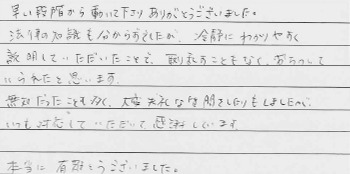 早い段階から動いて下さりありがとうございました。
法律の知識も分からずでしたが、冷静にわかりやすく
説明していただいたことで、取り乱すこともなく、おちついて
いられたと思います。
無知だったこともあり、大変失礼な質問をしたりもしましたが、
いつも対応していただいて、感謝しています。
本当に有難とうございました。